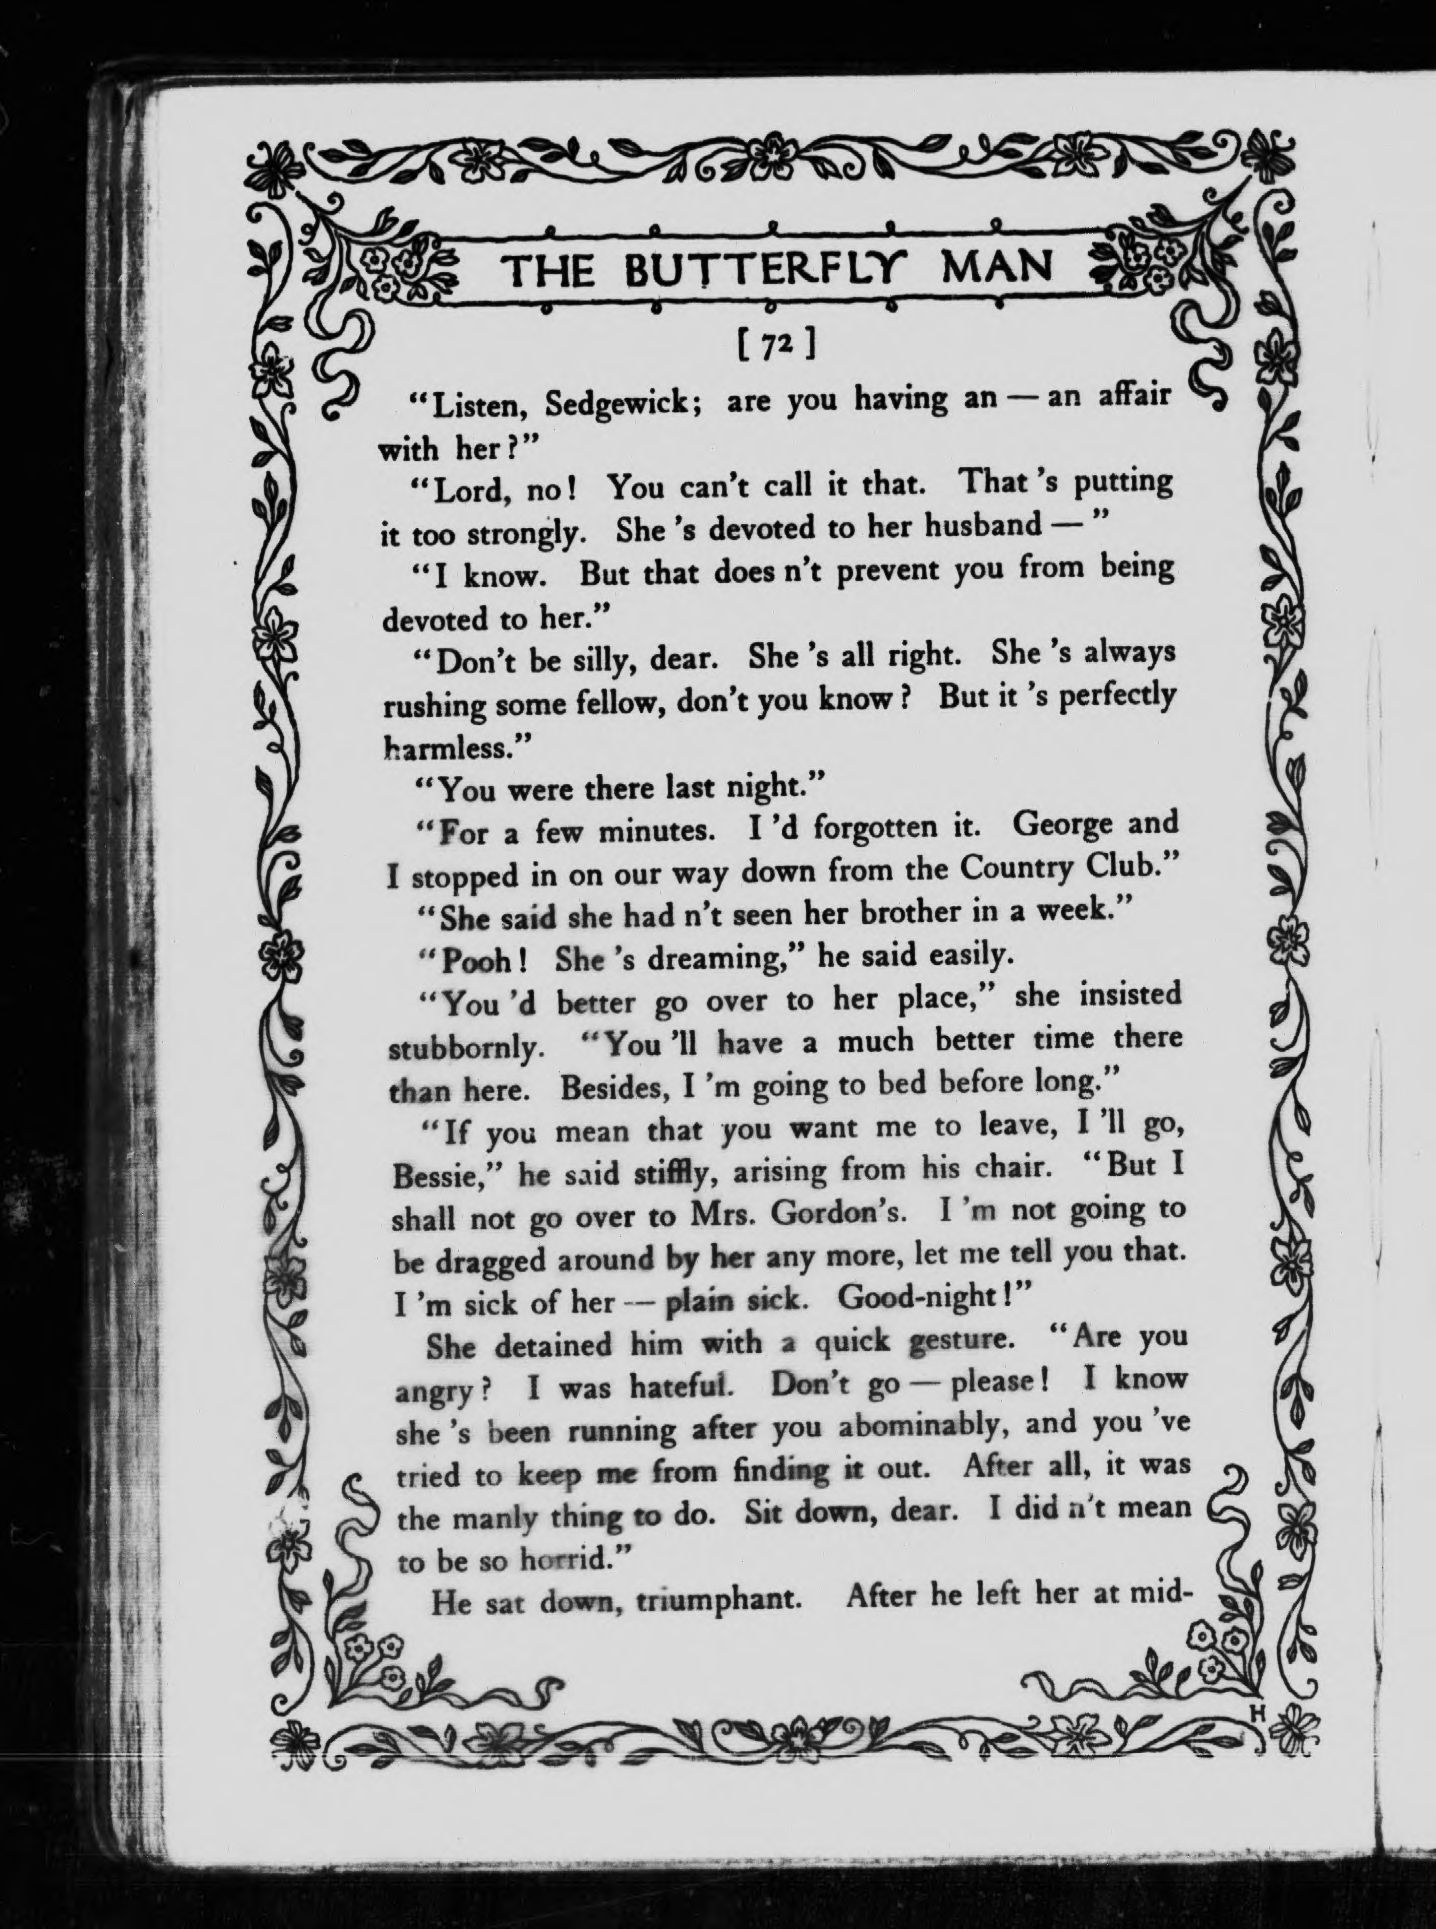 THE BUTTERFLY MAN
[ 72 ]
“Listen, Sedgewick; are you having an — an affair
with her?”
“Lord, no! You can't call it that. That 's putting
it too strongly. She 's devoted to her husband — ”
“I know. But that does n't prevent you from being
devoted to her.”
“Don't be silly, dear. She 's all right. She 's always
rushing some fellow, don't you know? But it 's perfectly
harmless.”
“You were there last night.”
“For a few minutes. I 'd forgotten it. George and
I stopped in on our way down from the Country Club.”
“She said she had n't seen her brother in a week.”
“Pooh! She 's dreaming,” he said easily.
“You 'd better go over to her place,” she insisted
stubbornly. “You 'll have a much better time there
than here. Besides, I 'm going to bed before long.”
“If you mean that you want me to leave, I 'll go,
Bessie,” he said stiffly, arising from his chair. “But I
shall not go over to Mrs. Gordon's. I 'm not going to
be dragged around by her any more, let me tell you that.
I 'm sick of her — plain sick. Good-night!”
She detained him with a quick gesture. “Are you
angry? I was hateful. Don't go — please! I know
she 's been running after you abominably, and you 've
tried to keep me from finding it out. After all, it was
the manly thing to do. Sit down, dear. I did n't mean
to be so horrid.”
He sat down, triumphant. After he left her at mid-
H